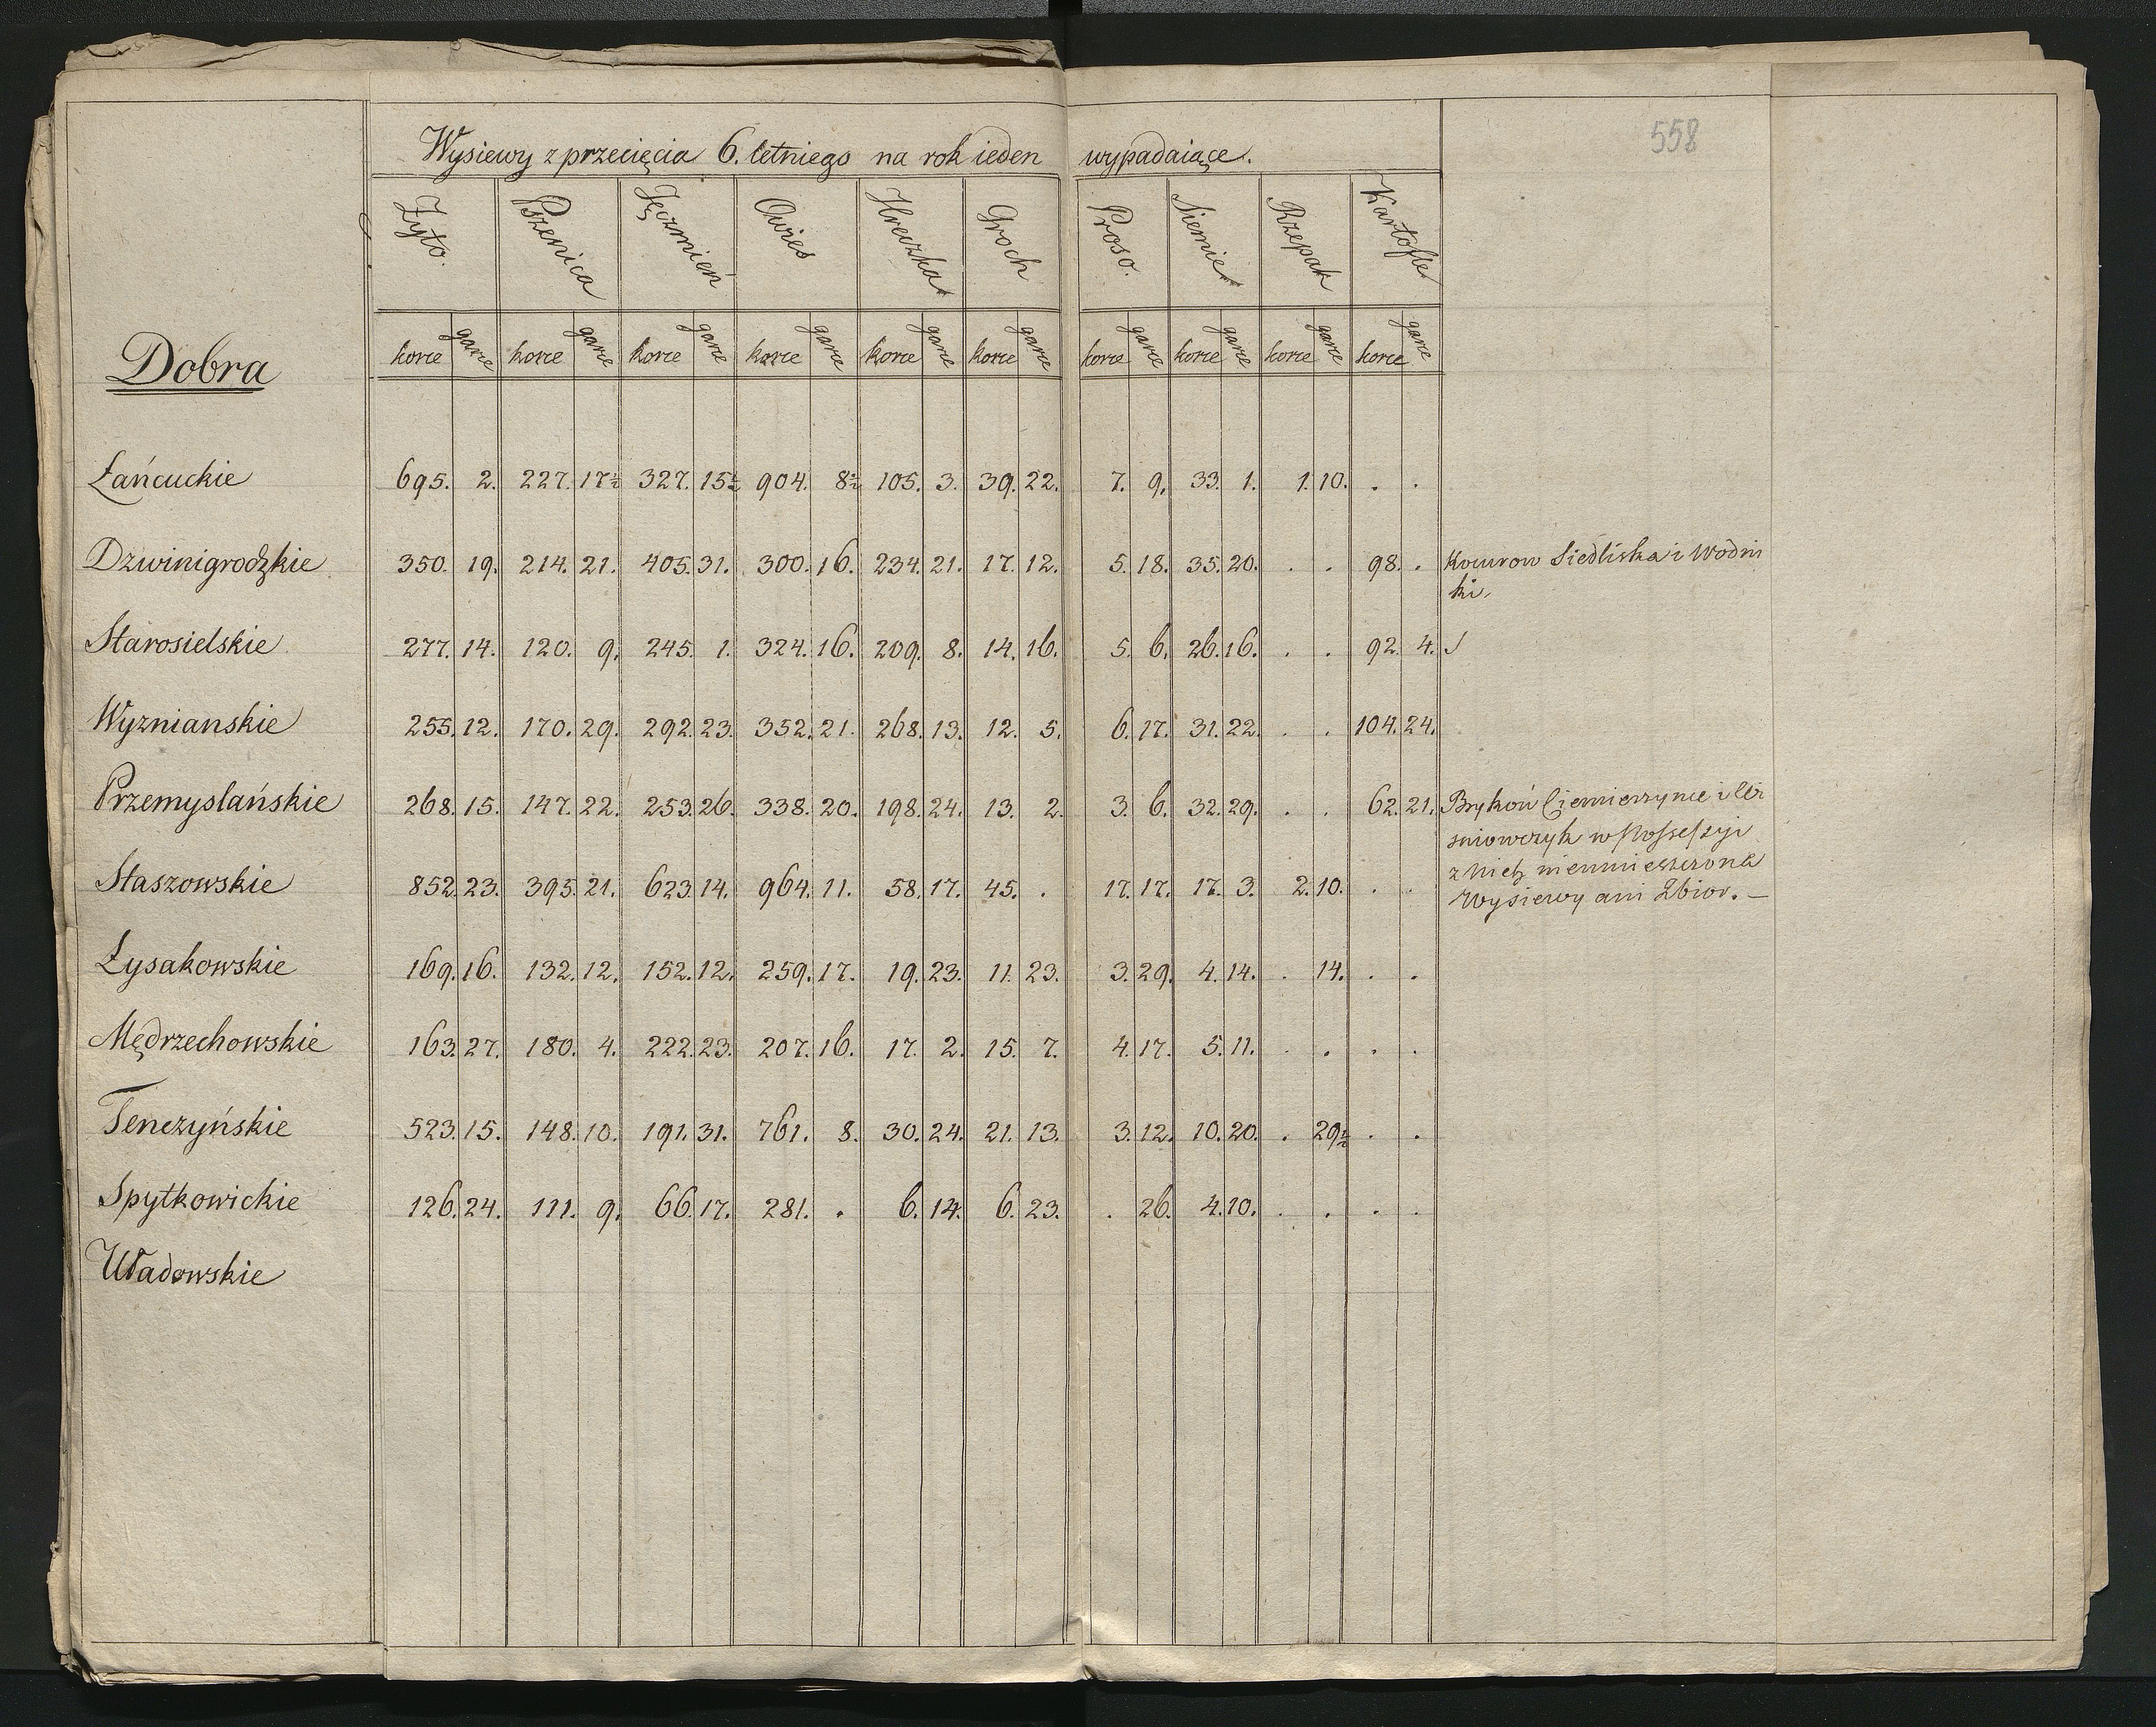 558
Wysiewy z przecięcia 6. letniego na rok ieden wypadaiące.
Dobra
Żyto. Pszenica Jęczmień Owies Hreczka Groch Proso. Siemie Rzepak Kartofle
korce garce korce garce korce garce korce garce korce garce korce garce korce garce korce garce korce garce korce garce
Łańcuckie 695. 2. 227. 17½ 327. 15½ 904. 8½ 105. 3. 39. 22. 7. 9. 33. 1. 1. 10. . .
Dzwinigrodzkie 350. 19. 214. 21. 405. 31. 300. 16. 234. 21. 17. 12. 5. 18. 35. 20. . . 98. . Kocurow Siedliska i Wodni
ki.
Starosielskie 277. 14. 120. 9. 245. 1. 324. 16. 209. 8. 14. 16. 5. 6. 26. 16. . . 92. 4.
Wyznianskie 255. 12. 170. 29. 292. 23. 352. 21. 268. 13. 12. 5. 6. 17. 31. 22. . . 104. 24.
Przemyslańskie 268. 15. 147. 22. 253. 26. 338. 20. 198. 24. 13. 2. 3. 6. 32. 29. . . 62. 21. Brykoń Ciemierzynce i Wi
sniowczyk w Possessyi
z nich nieumieszczone
Staszowskie 852. 23. 395. 21. 623. 14. 964. 11. 58. 17. 45. . 17. 17. 17. 3. 2. 10. . . Wysiewy ani Zbior. —
Łysakowskie 169. 16. 132. 12. 152. 12. 259. 17. 19. 23. 11. 23. 3. 29. 4. 14. . 14. . .
Mędrzechowskie 163. 27. 180. 4. 222. 23. 207. 16. 17. 2. 15. 7. 4. 17. 5. 11. . . . .
Tenczyńskie 523. 15. 148. 10. 191. 31. 761. 8. 30. 24. 21. 13. 3. 12. 10. 20. . 29½ . .
Spytkowickie 126. 24. 111. 9. 66. 17. 281. . 6. 14. 6. 23. . 26. 4. 10. . . . .
Uładowskie